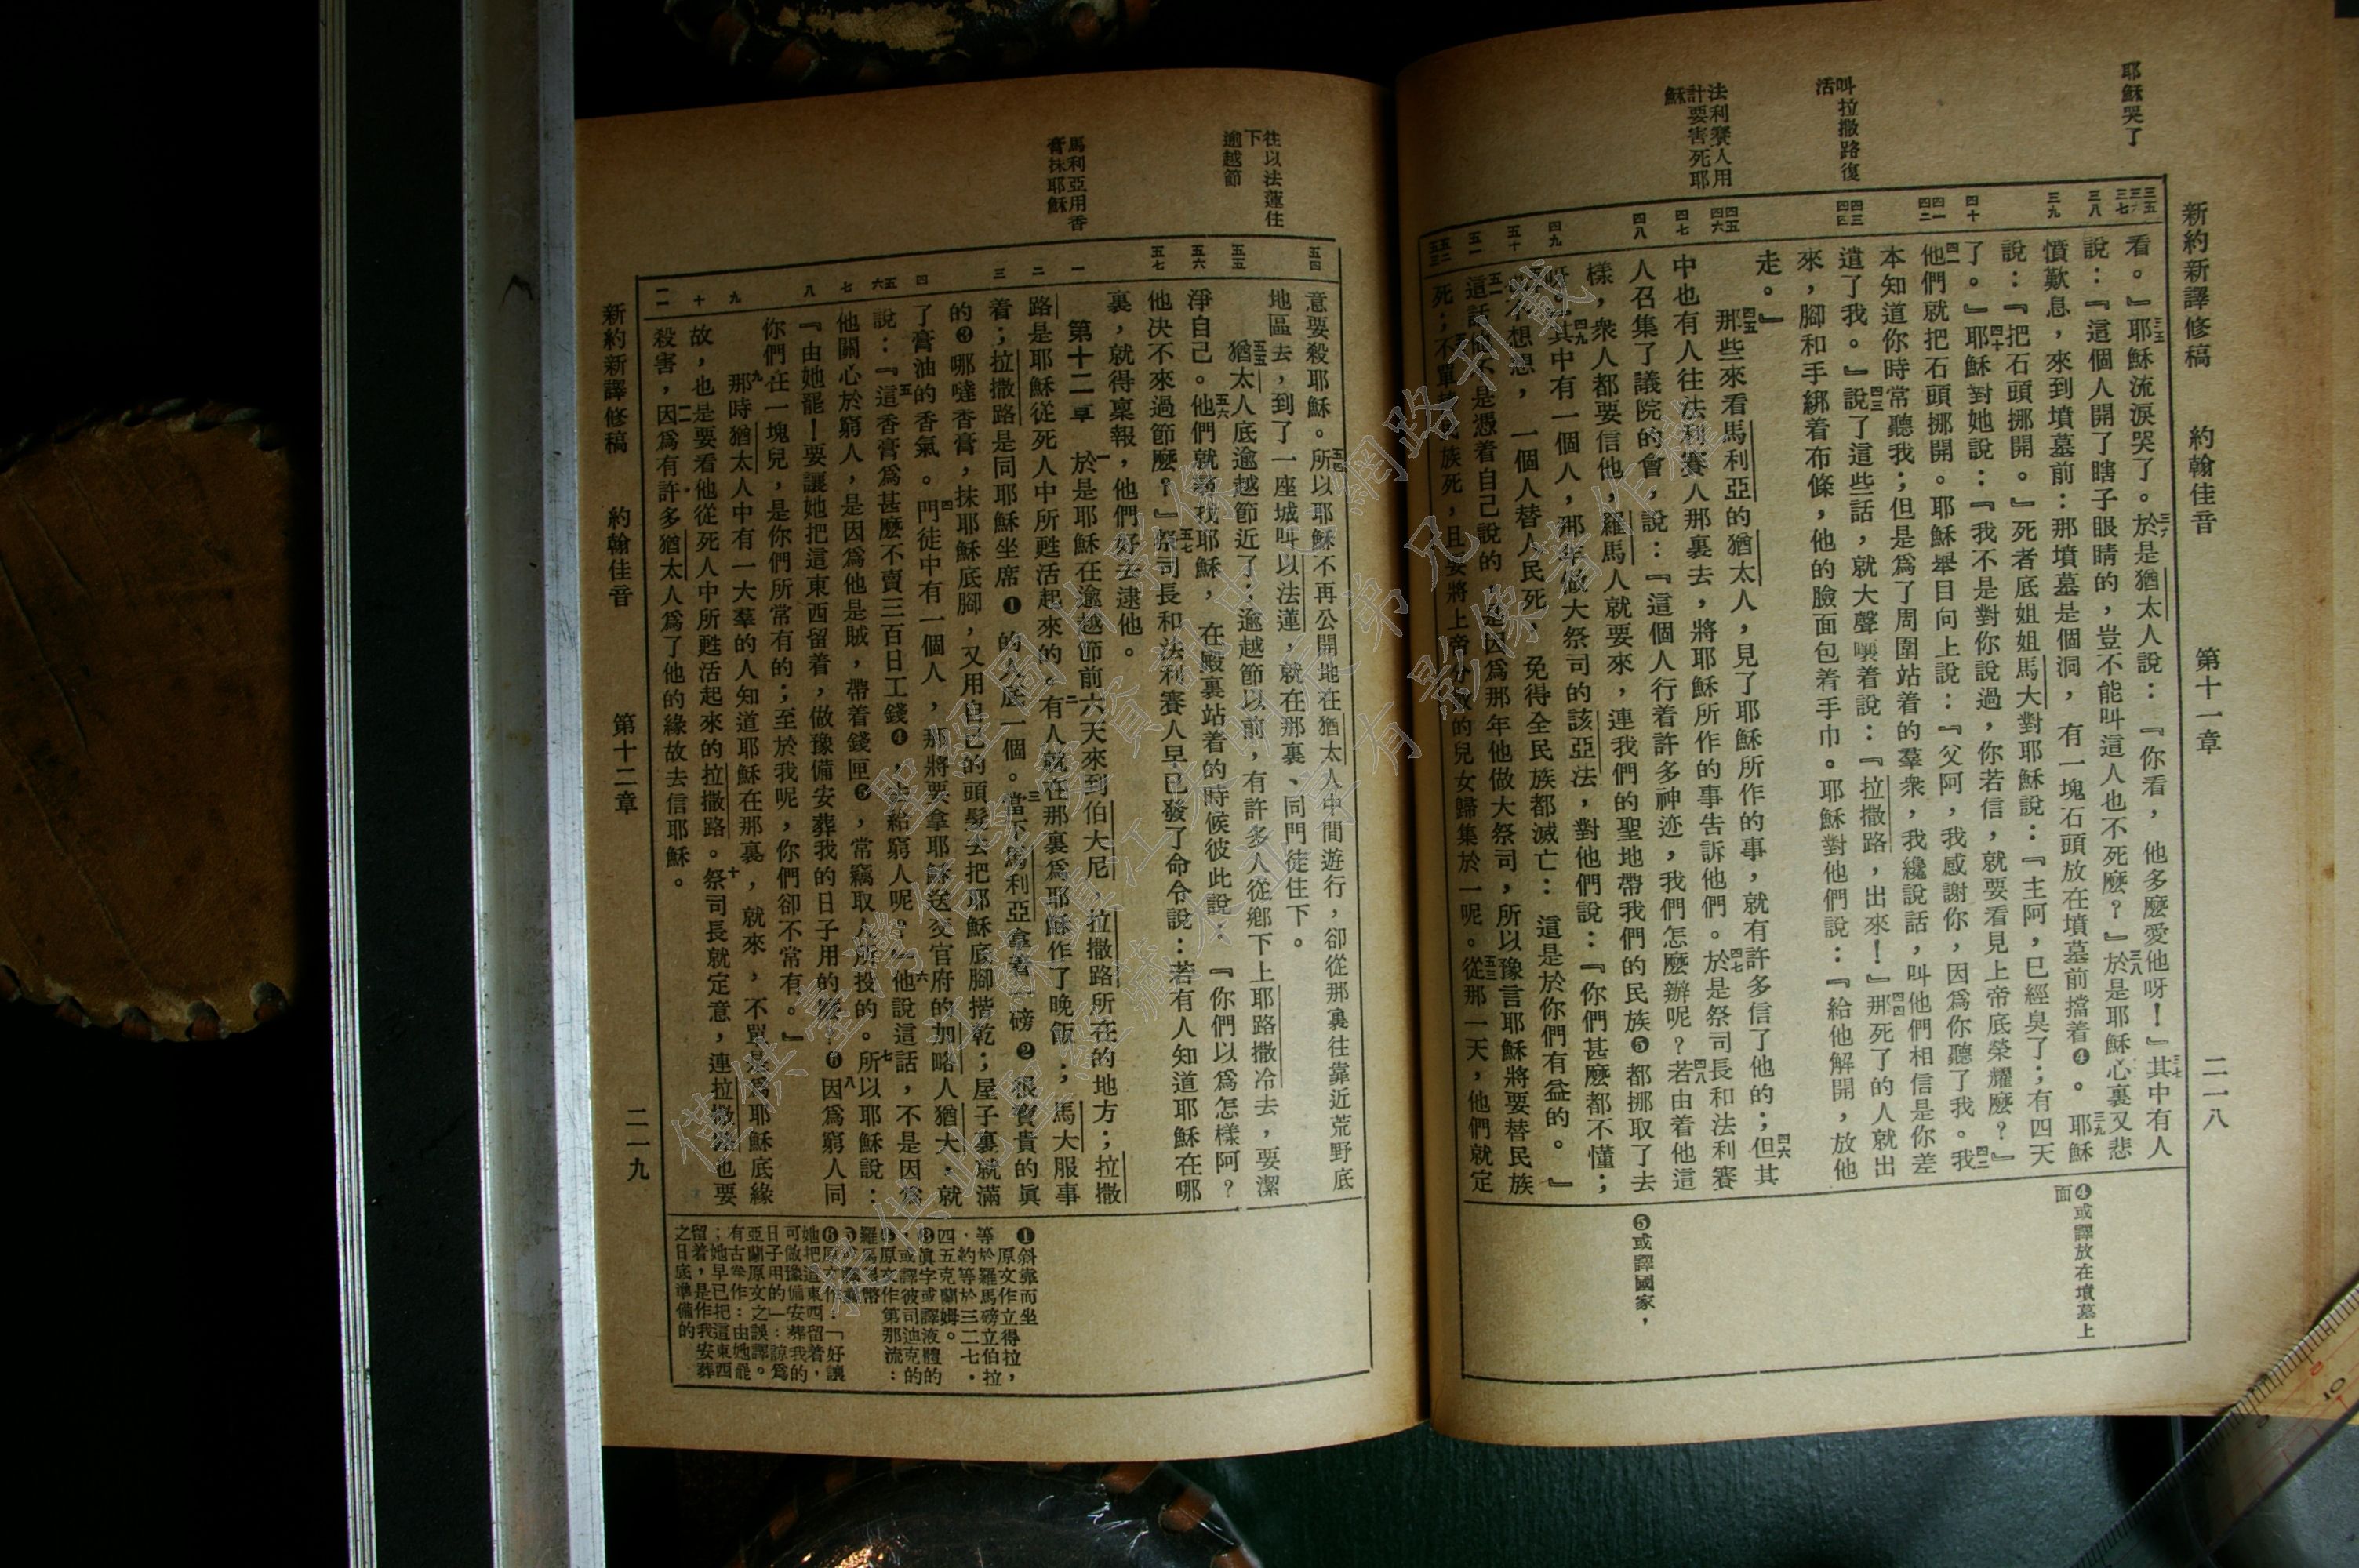 新約新譯修稿 約翰佳音 第十一章 二一八
耶穌哭了
叫拉撒路復活
法利賽人用計要害死耶穌
三五
三六
三七
三八
三九
四十
四一
四二
四三
四四
四五
四六
四七
四八
四九
五十
五一
五二
五三
看。』三五耶穌流淚哭了。三六於是猶太人說：『你看，他多麼愛他呀！』三七其中有人
說：『這個人開了瞎子眼睛的，豈不能叫這人也不死麼？』三八於是耶穌心裏又悲
憤歎息，來到墳墓前：那墳墓是個洞，有一塊石頭放在墳墓前擋着❹。三九耶穌
說：『把石頭挪開。』死者底姐姐馬大對耶穌說：『主阿，已經臭了；有四天
了。』四十耶穌對她說：『我不是對你說過，你若信，就要看見上帝底榮耀麼？』
四一他們就把石頭挪開。耶穌舉目向上說：『父阿，我感謝你，因爲你聽了我。四二我
本知道你時常聽我；但是爲了周圍站着的羣衆，我纔說話，叫他們相信是你差
遣了我。』四三說了這些話，就大聲嚷着說：『拉撒路，出來！』四四那死了的人就出
來，腳和手綁着布條，他的臉面包着手巾。耶穌對他們說：『給他解開，放他
走。』
四五那些來看馬利亞的猶太人，見了耶穌所作的事，就有許多信了他的；四六但其
中也有人往法利賽人那裏去，將耶穌所作的事告訴他們。四七於是祭司長和法利賽
人召集了議院的會，說：『這個人行着許多神迹，我們怎麼辦呢？四八若由着他這
樣，衆人都要信他，羅馬人就要來，連我們的聖地帶我們的民族❺都挪取了去
呀。』四九其中有一個人，那年做大祭司的該亞法，對他們說：『你們甚麼都不懂；
也不想想，一個人替人民死，免得全民族都滅亡：這是於你們有益的。』
五一這話他不是憑着自己說的，是因爲那年他做大祭司，所以豫言耶穌將要替民族
死；不單替民族死，且要將上帝的兒女歸集於一呢。五三從那一天，他們就定
❹或譯放在墳墓上面
❺或譯國家，
往以法蓮住下
逾越節
馬利亞用香膏抹耶穌
五四
五五
五六
五七
一
二
三
四
五
六
七
八
九
十
一一
意要殺耶穌。五四所以耶穌不再公開地在猶太人中間遊行，卻從那裏往靠近荒野底
地區去，到了一座城叫以法蓮，就在那裏、同門徒住下。
五五猶太人底逾越節近了；逾越節以前，有許多人從鄉下上耶路撒冷去，要潔
淨自己。五六他們就尋找耶穌，在殿裏站着的時候彼此說：『你們以爲怎樣阿？
他決不來過節麼？』五七祭司長和法利賽人早已發了命令說：若有人知道耶穌在哪
裏，就得稟報，他們好去逮他。
第十二章 一於是耶穌在逾越節前六天來到伯大尼，拉撒路所在的地方；拉撒
路是耶穌從死人中所甦活起來的。二有人就在那裏爲耶穌作了晚飯；馬大服事
着；拉撒路是同耶穌坐席❶的人底一個。三當下馬利亞拿着一磅❷很寶貴的眞
的❸哪噠香膏，抹耶穌底腳，又用自己的頭髮去把耶穌底腳揩乾；屋子裏就滿
了膏油的香氣。四門徒中有一個人，那將要拿耶穌送交官府的加略人猶大，就
說：『五這香膏爲甚麼不賣三百日工錢❹，去給窮人呢？』六他說這話，不是因爲
他關心於窮人，是因爲他是賊，帶着錢匣❺，常竊取人所投的。七所以耶穌說：
『由她罷！要讓她把這東西留着，做豫備安葬我的日子用的麼？❻八因爲窮人同
你們在一塊兒，是你們所常有的；至於我呢，你們卻不常有。』
九那時猶太人中有一大羣的人知道耶穌在那裏，就來，不單是爲耶穌底緣
故，也是要看他從死人中所甦活起來的拉撒路。十祭司長就定意，連拉撒路也要
殺害，一一因爲有許多猶太人爲了他的緣故去信耶穌。
❶斜靠而坐
❷原文作立得拉，等於羅馬磅立伯拉，約等於三二七·四五克蘭姆。
❸眞字或譯液體的，或譯彼司迪克的
❹原文作第那流：羅馬銀幣
❻原文作：「好讓她把這東西留着，可做豫備安葬我的日子用的」：諒爲亞蘭原文之誤譯。有古卷作：由她罷；她早已把這東西留着，是作我安葬之日底準備的
新約新譯修稿 約翰佳音 第十二章 二一九